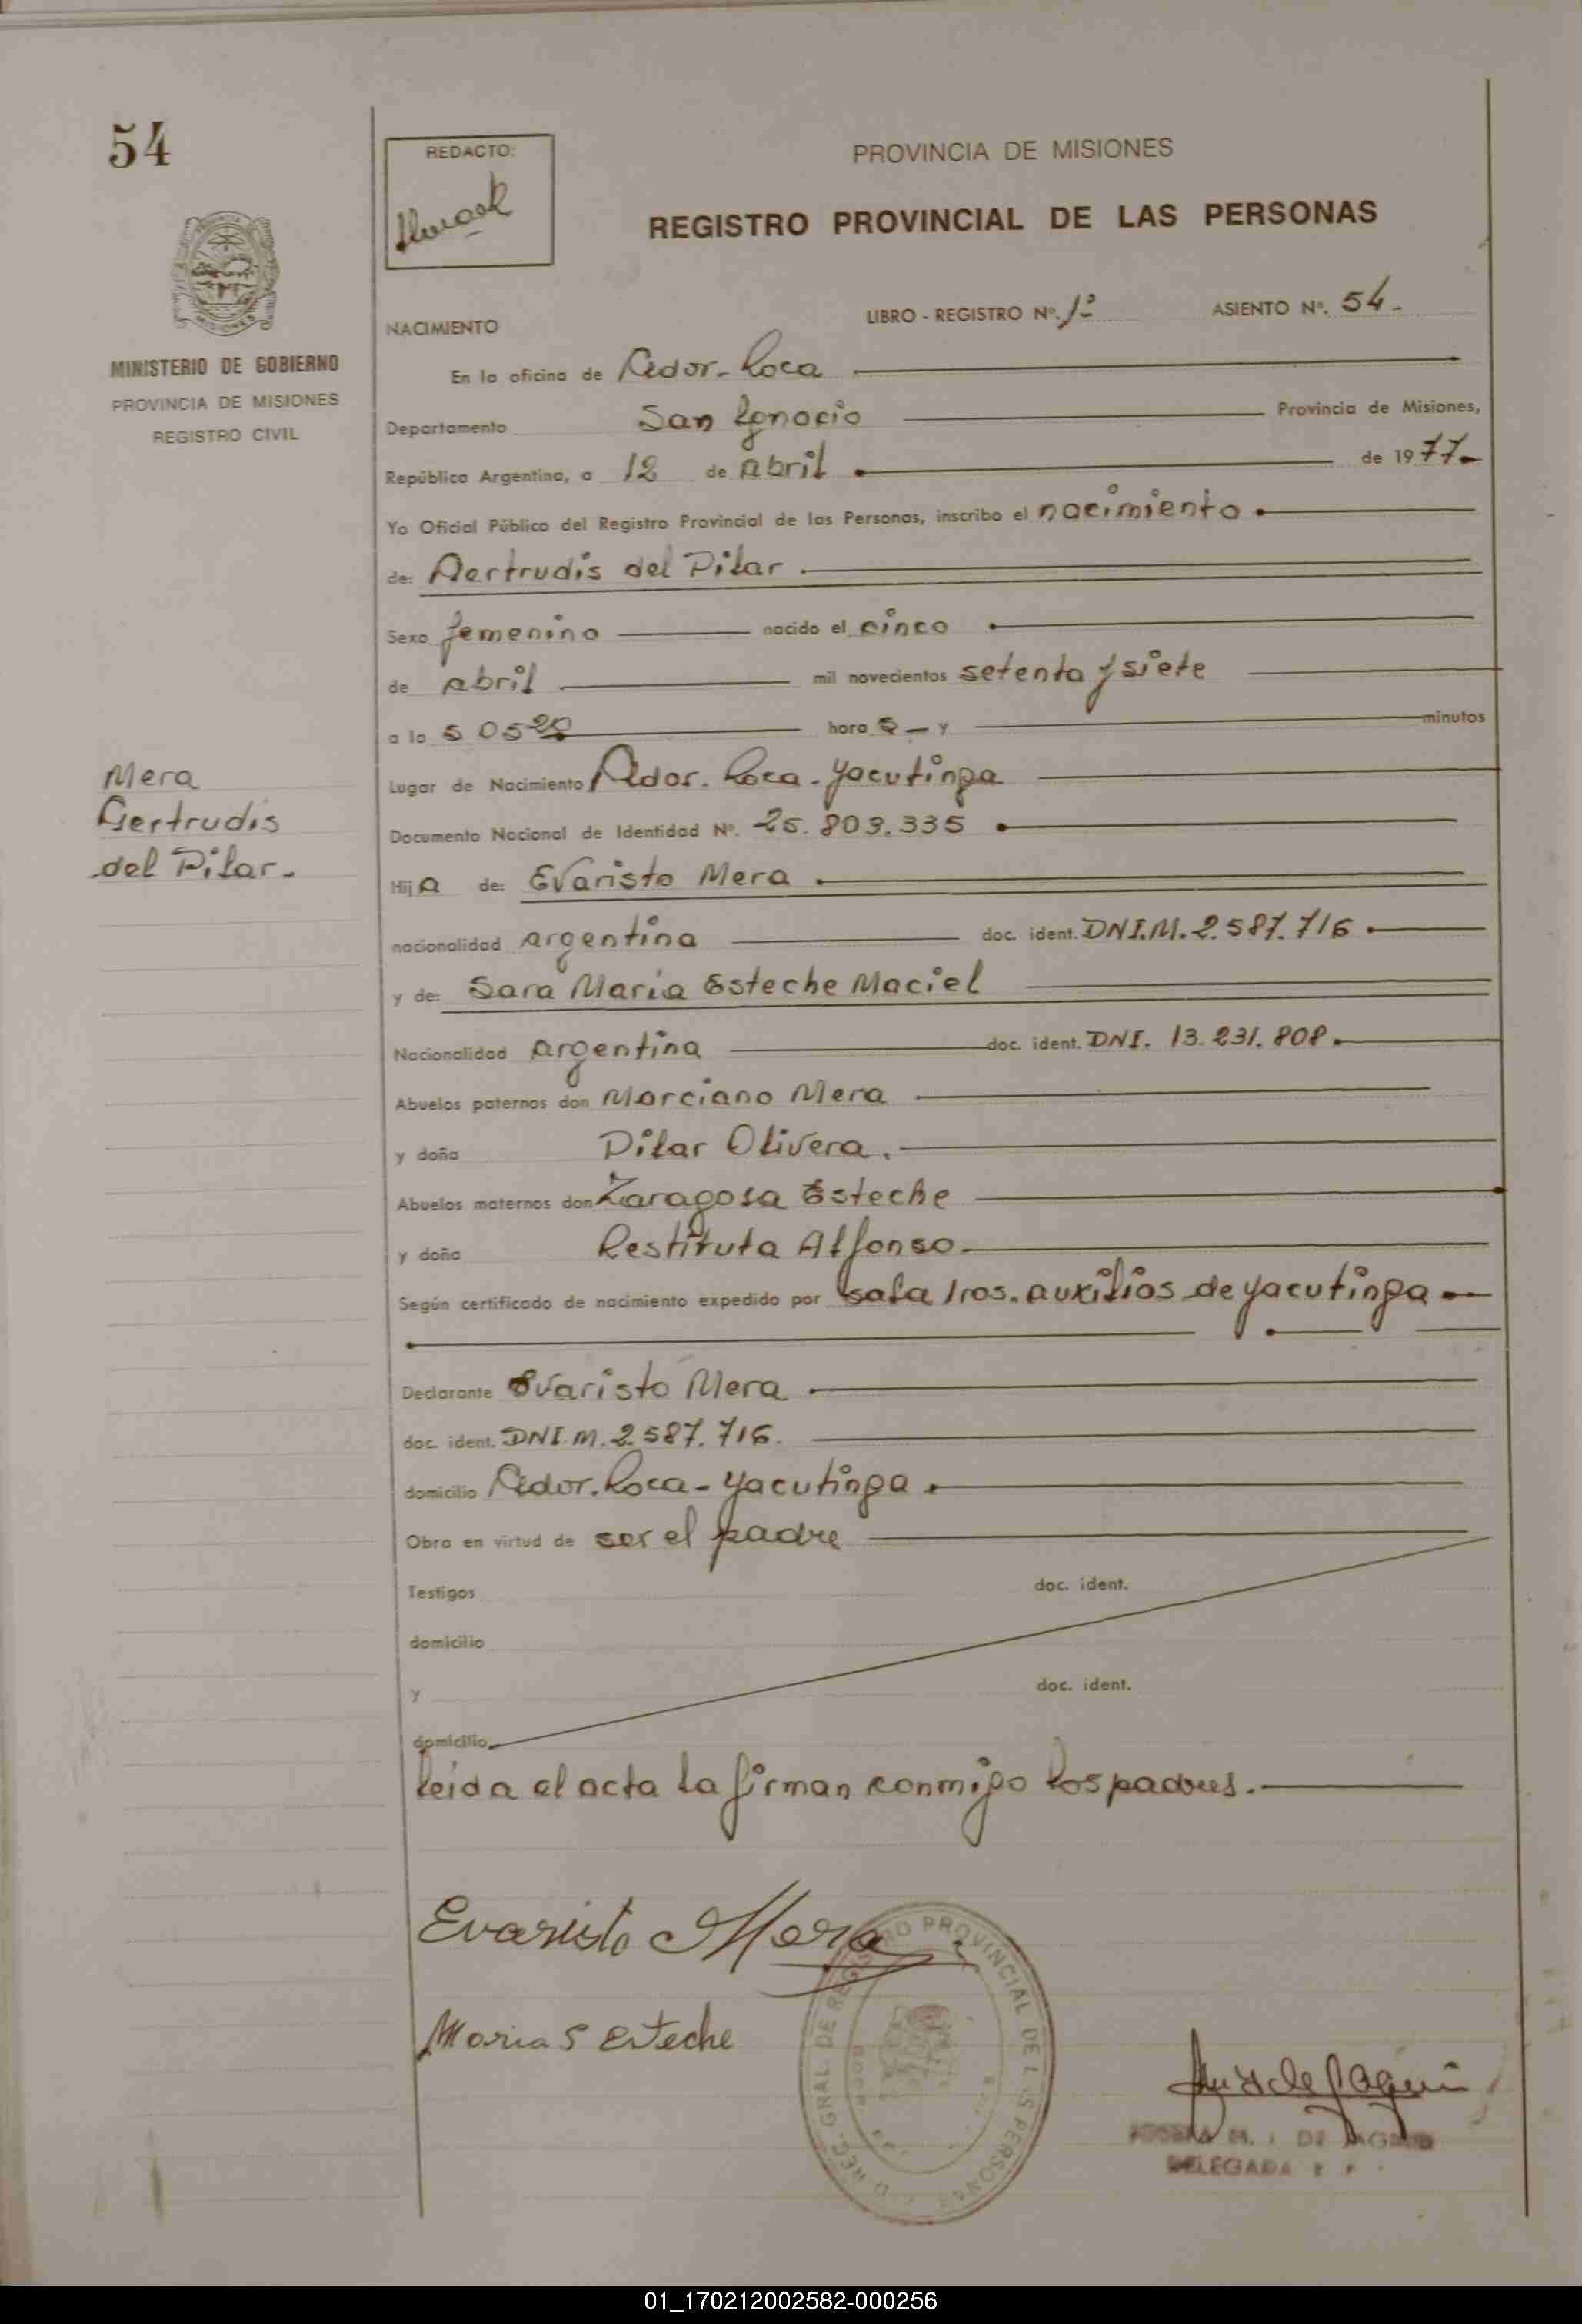 54
REDACTO:
PROVINCIA DE MISIONES
REGISTRO PROVINCIAL DE LAS PERSONAS
MISIONES
MINISTERIO DE GOBIERNO
PROVINCIA DE MISIONES
REGISTRO CIVIL
NACIMIENTO LIBRO - REGISTRO Nº. 1º ASIENTO Nº. 54.-
En la oficina de Gdor. Roca
Departamento San Ignacio Provincia de Misiones,
República Argentina, a 12 de abril de 1977-
Yo Oficial Público del Registro Provincial de las Personas, inscribo el nacimiento
de: Gertrudis del Pilar
Sexo femenino nacido el cinco
de abril mil novecientos setenta y siete
a la s 05 20 hora s - y minutos
Lugar de Nacimiento Gdor. Roca - Yacutinga
Documento Nacional de Identidad Nº. 25.803.335
Hij a de: Evaristo Mera
nacionalidad argentina doc. ident. DNI.M. 2.587.716
y de: Sara María Esteche Maciel
Nacionalidad argentina doc. ident. DNI. 13.231.808.
Abuelos paternos don Marciano Mera
y doña Pilar Olivera.
Abuelos maternos don Zaragosa Esteche
y doña Restituta Alfonso
Según certificado de nacimiento expedido por sala 1ros. auxilios de Yacutinga
Declarante Evaristo Mera
doc. ident. DNI.M. 2.587.716.
domicilio Gdor. Roca - Yacutinga
Obra en virtud de ser el padre
Testigos doc. ident.
domicilio
y doc. ident.
domicilio
leida el acta la firman conmigo los padres.
Mera
Gertrudis
del Pilar.
Evaristo Mera
Maria S Esteche
REGISTRO PROVINCIAL DE LAS PERSONAS
M. DE
DELEGADA
01_170212002582-000256